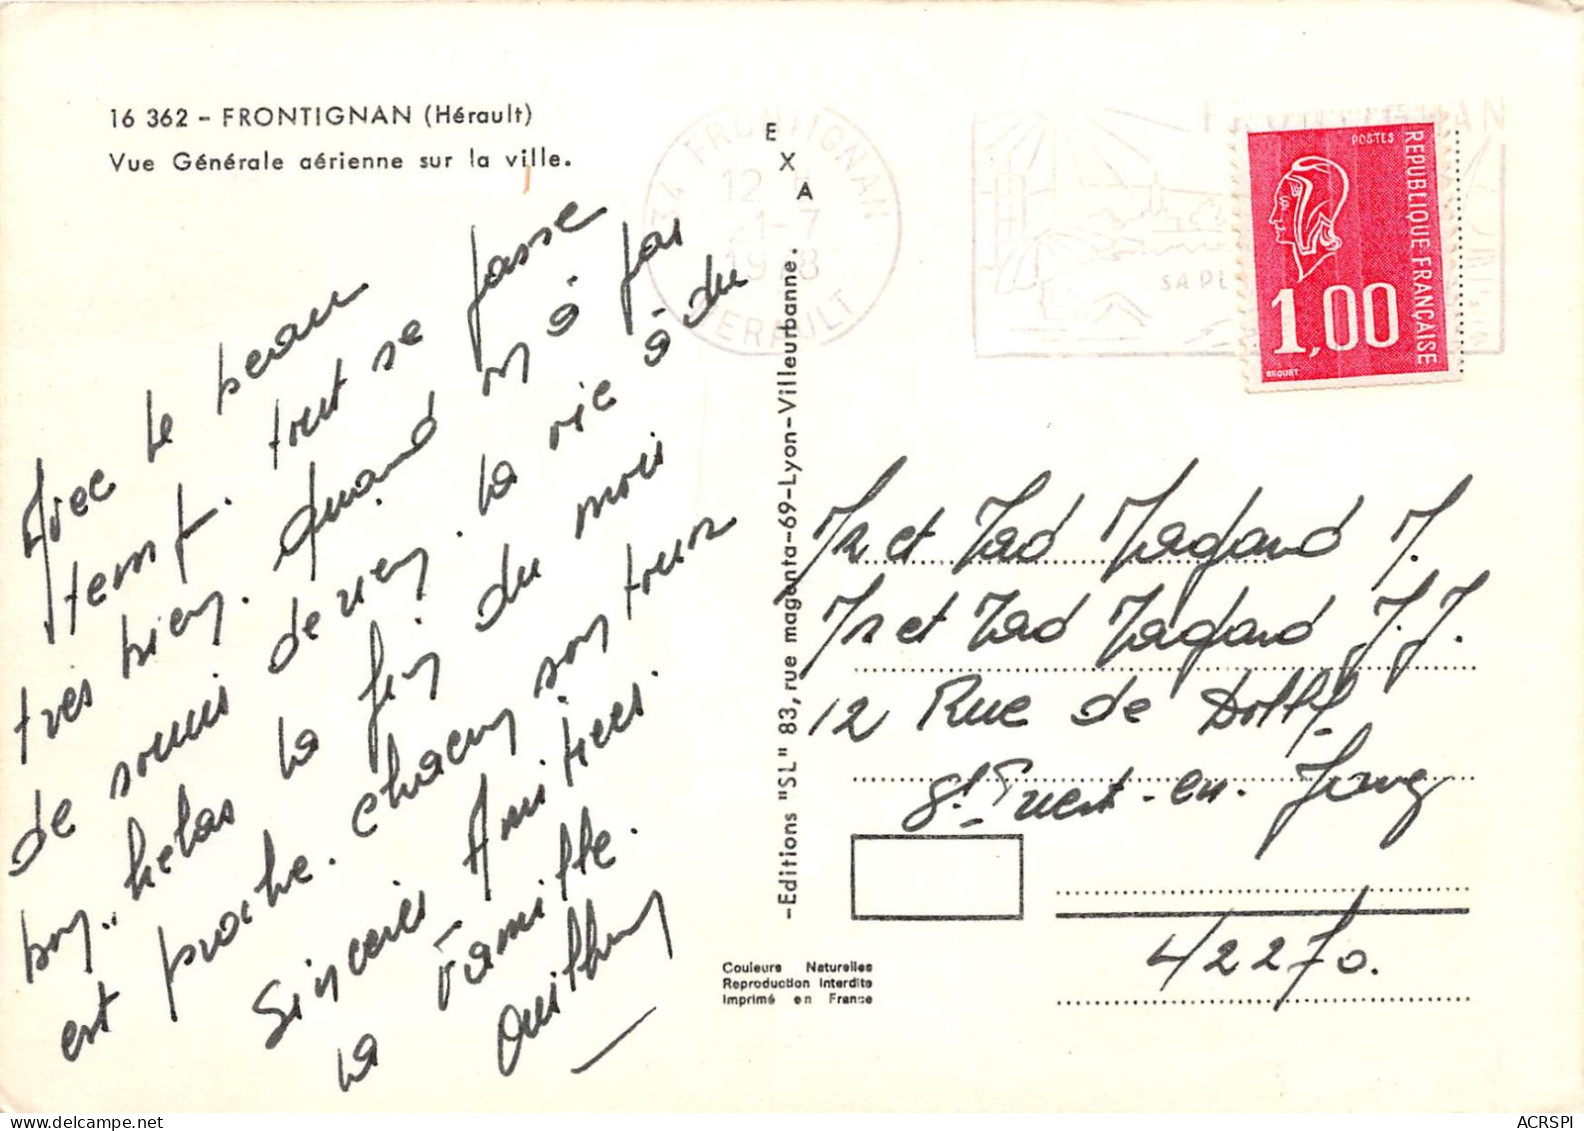 16 362 - FRONTIGNAN (Hérault)
Vue Générale aérienne sur la ville.
Avec le beau
temps. tout se passe
très bien. Quand on à pas
de soucis de rien. la vie à du
bon.. hélas la fin du mois
est proche. chacun son tour
Sincères Amitiées.
la Famille.
E
X
A
-Editions "SL" 83, rue magenta-69-Lyon-Villeurbanne.
Couleurs Naturelles
Reproduction Interdite
Imprimé en France
34 FRONTIGNAN
12 H
21-7
1978
HERAULT
SA PL
POSTES
REPUBLIQUE FRANÇAISE
1,00
BEQUET
Mr et Mad Magand J.
Mr et Mad Magand J.J.
12 Rue de
St. Priest-en-Jarez
42270.
ACRSPI